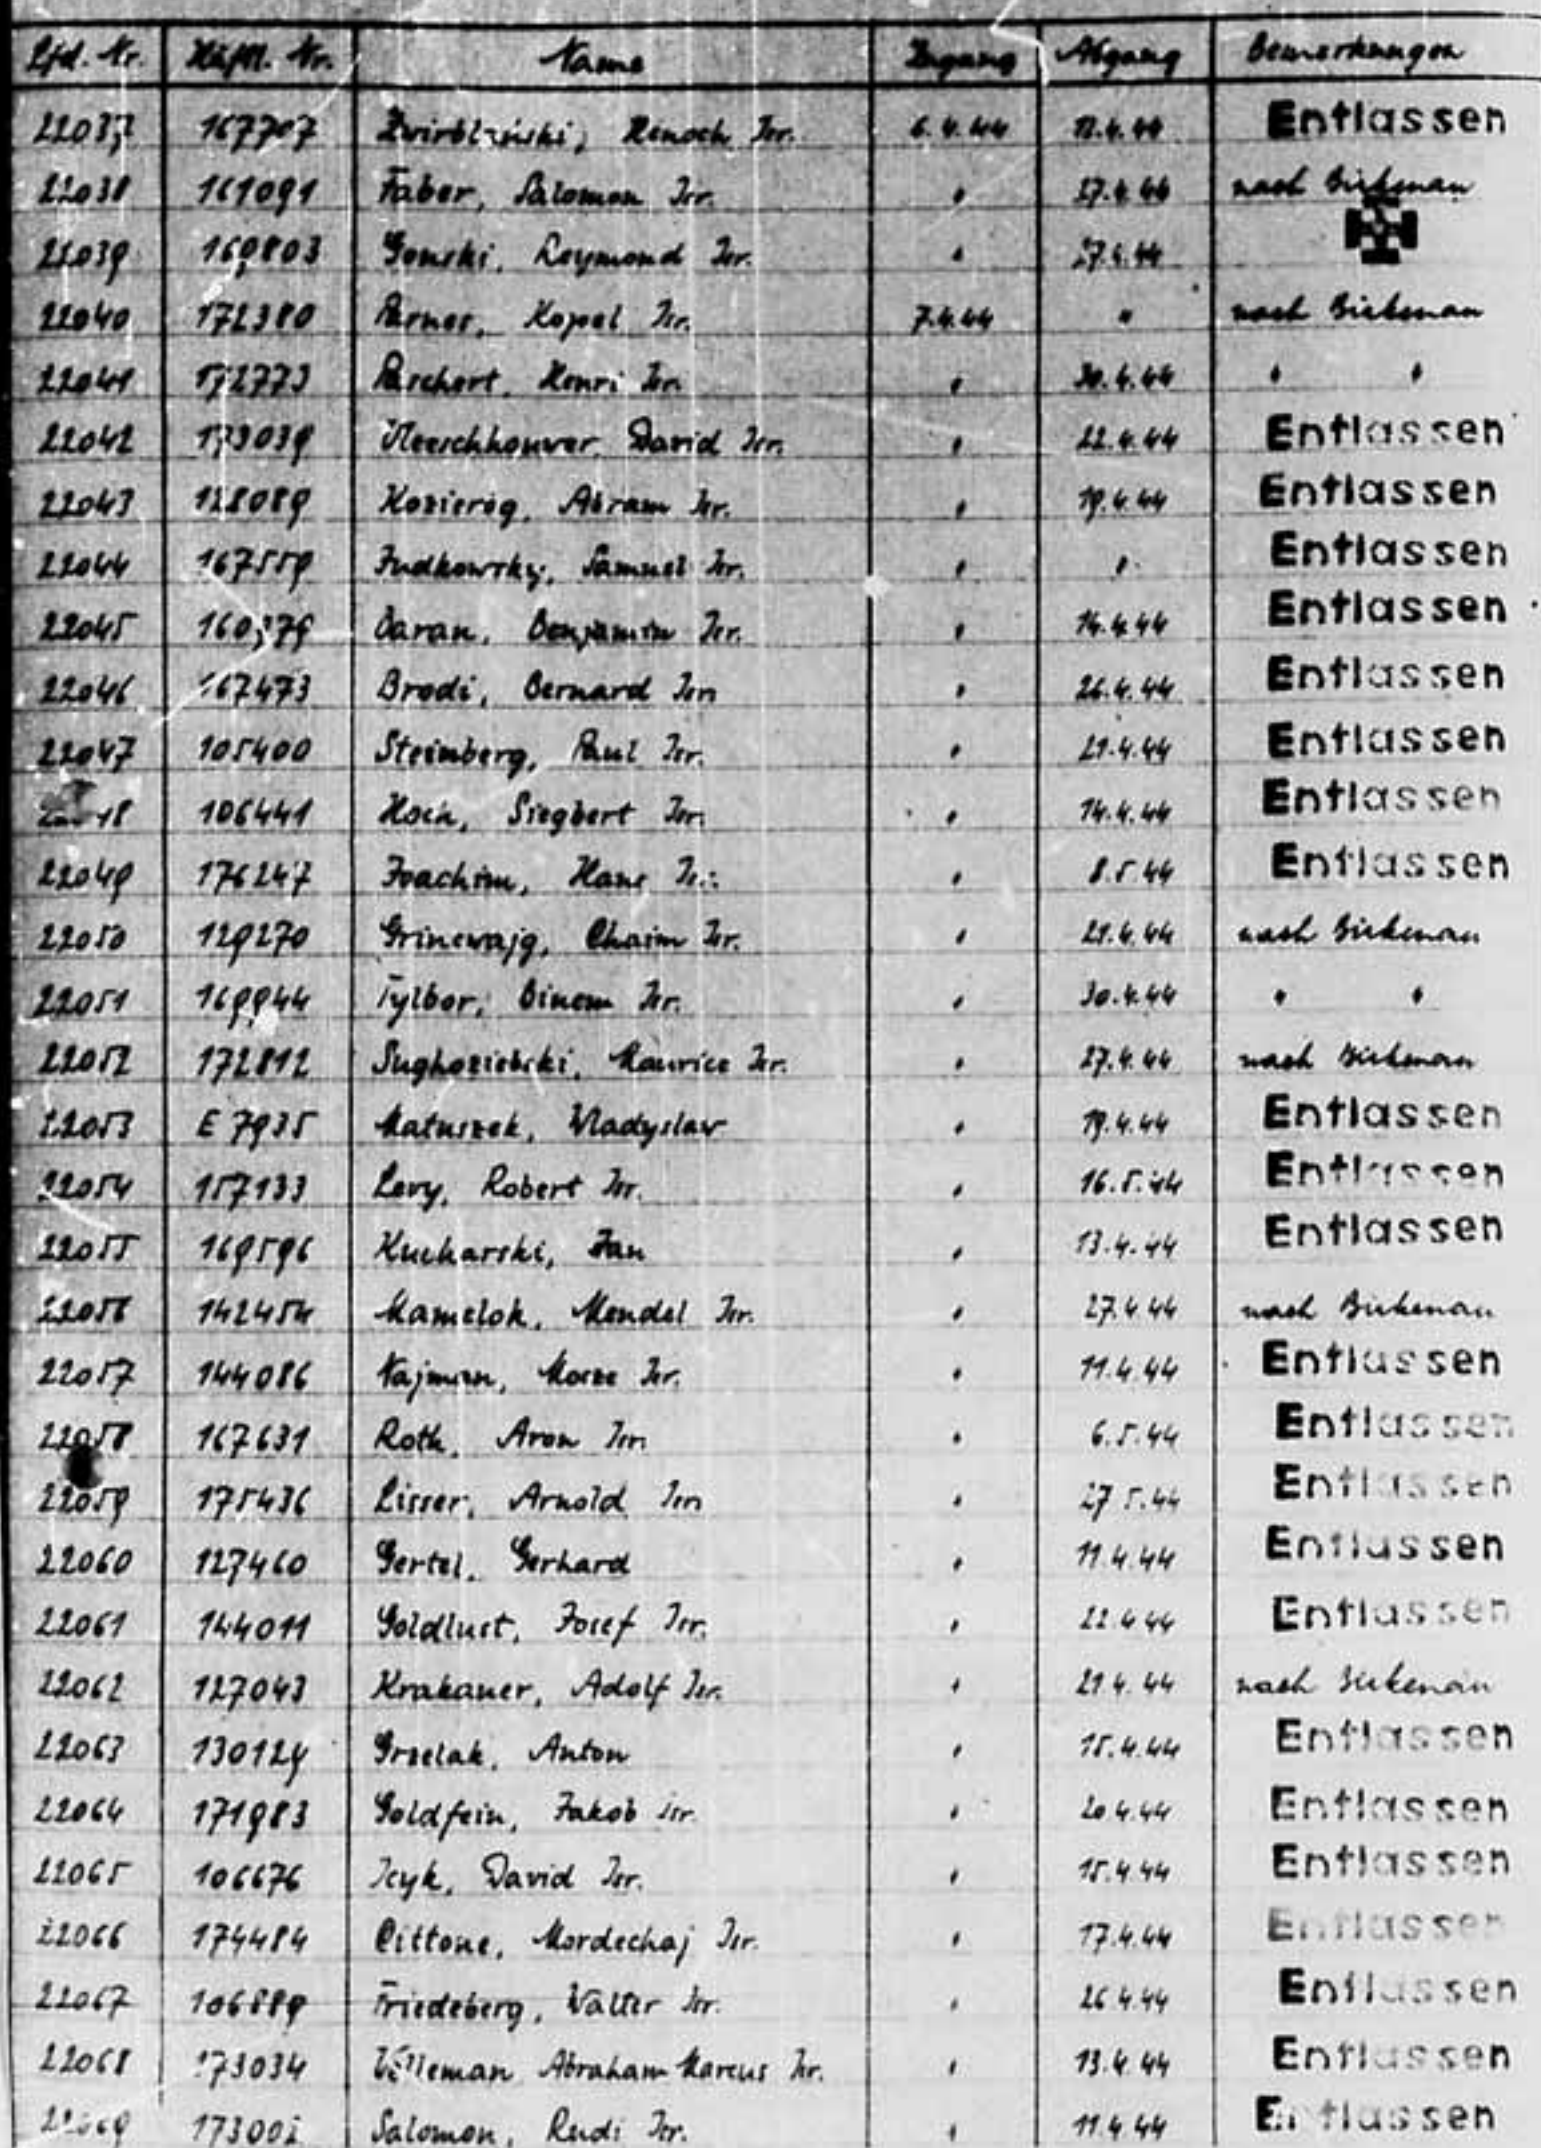 Lfd. Nr. Häftl. Nr. Name Zugang Abgang Bemerkungen
22037 167707 Henoch Isr. 6.4.44 12.4.44 Entlassen
22038 161091 Faber, Salomon Isr. " 27.4.44 nach Birkenau
22039 169803 Gonski, Reymond Isr. " 27.4.44
22040 172380 Perner, Kopel Isr. 7.4.44 " nach Birkenau
22041 172773 Henri Isr. " 30.4.44 " "
22042 173039 Vleeschhouwer David Isr. " 22.4.44 Entlassen
22043 128089 Kozierog, Abram Isr. " 19.4.44 Entlassen
22044 167559 Judkowsky, Samuel Isr. " " Entlassen
22045 Baran, Benjamin Isr. " 14.4.44 Entlassen
22046 167473 Brodi, Bernard Isr. " 26.4.44 Entlassen
22047 105400 Steinberg, Paul Isr. " 21.4.44 Entlassen
106441 Siegbert Isr. " 14.4.44 Entlassen
22049 176247 Joachim, Hans " 8.5.44 Entlassen
22050 129270 Grinewajg, Chaim Isr. " 21.4.44 nach Birkenau
22051 169944 Tylbor, Binem Isr. " 30.4.44 " "
22052 172812 Maurice Isr. " 27.4.44 nach Birkenau
22053 E 7935 Matuszek, Wladyslaw " 19.4.44 Entlassen
22054 157133 Levy, Robert Isr. " 16.5.44 Entlassen
22055 169596 Kucharski, Jan " 13.4.44 Entlassen
22056 142454 Mamelok, Mendel Isr. " 27.4.44 nach Birkenau
22057 144086 Najman, Isr. " 11.4.44 Entlassen
22058 167631 Roth, Aron Isr. " 6.5.44 Entlassen
22059 175436 Lisser, Arnold Isr. " 27.5.44 Entlassen
22060 127460 Gertel, Gerhard " 11.4.44 Entlassen
22061 144011 Goldlust, Josef Isr. " 22.4.44 Entlassen
22062 127043 Krakauer, Adolf Isr. " 21.4.44 nach Birkenau
22063 130129 Grzelak, Anton " 15.4.44 Entlassen
22064 171983 Goldfein, Jakob Isr. " 20.4.44 Entlassen
22065 106676 Icyk, David Isr. " 15.4.44 Entlassen
22066 174484 Cittone, Mordechaj Isr. " 17.4.44 Entlassen
22067 106889 Friedeberg, Walter Isr. " 26.4.44 Entlassen
22068 173034 Abraham Marcus Isr. " 13.4.44 Entlassen
22069 Salomon, Rudi Isr. " 11.4.44 Entlassen